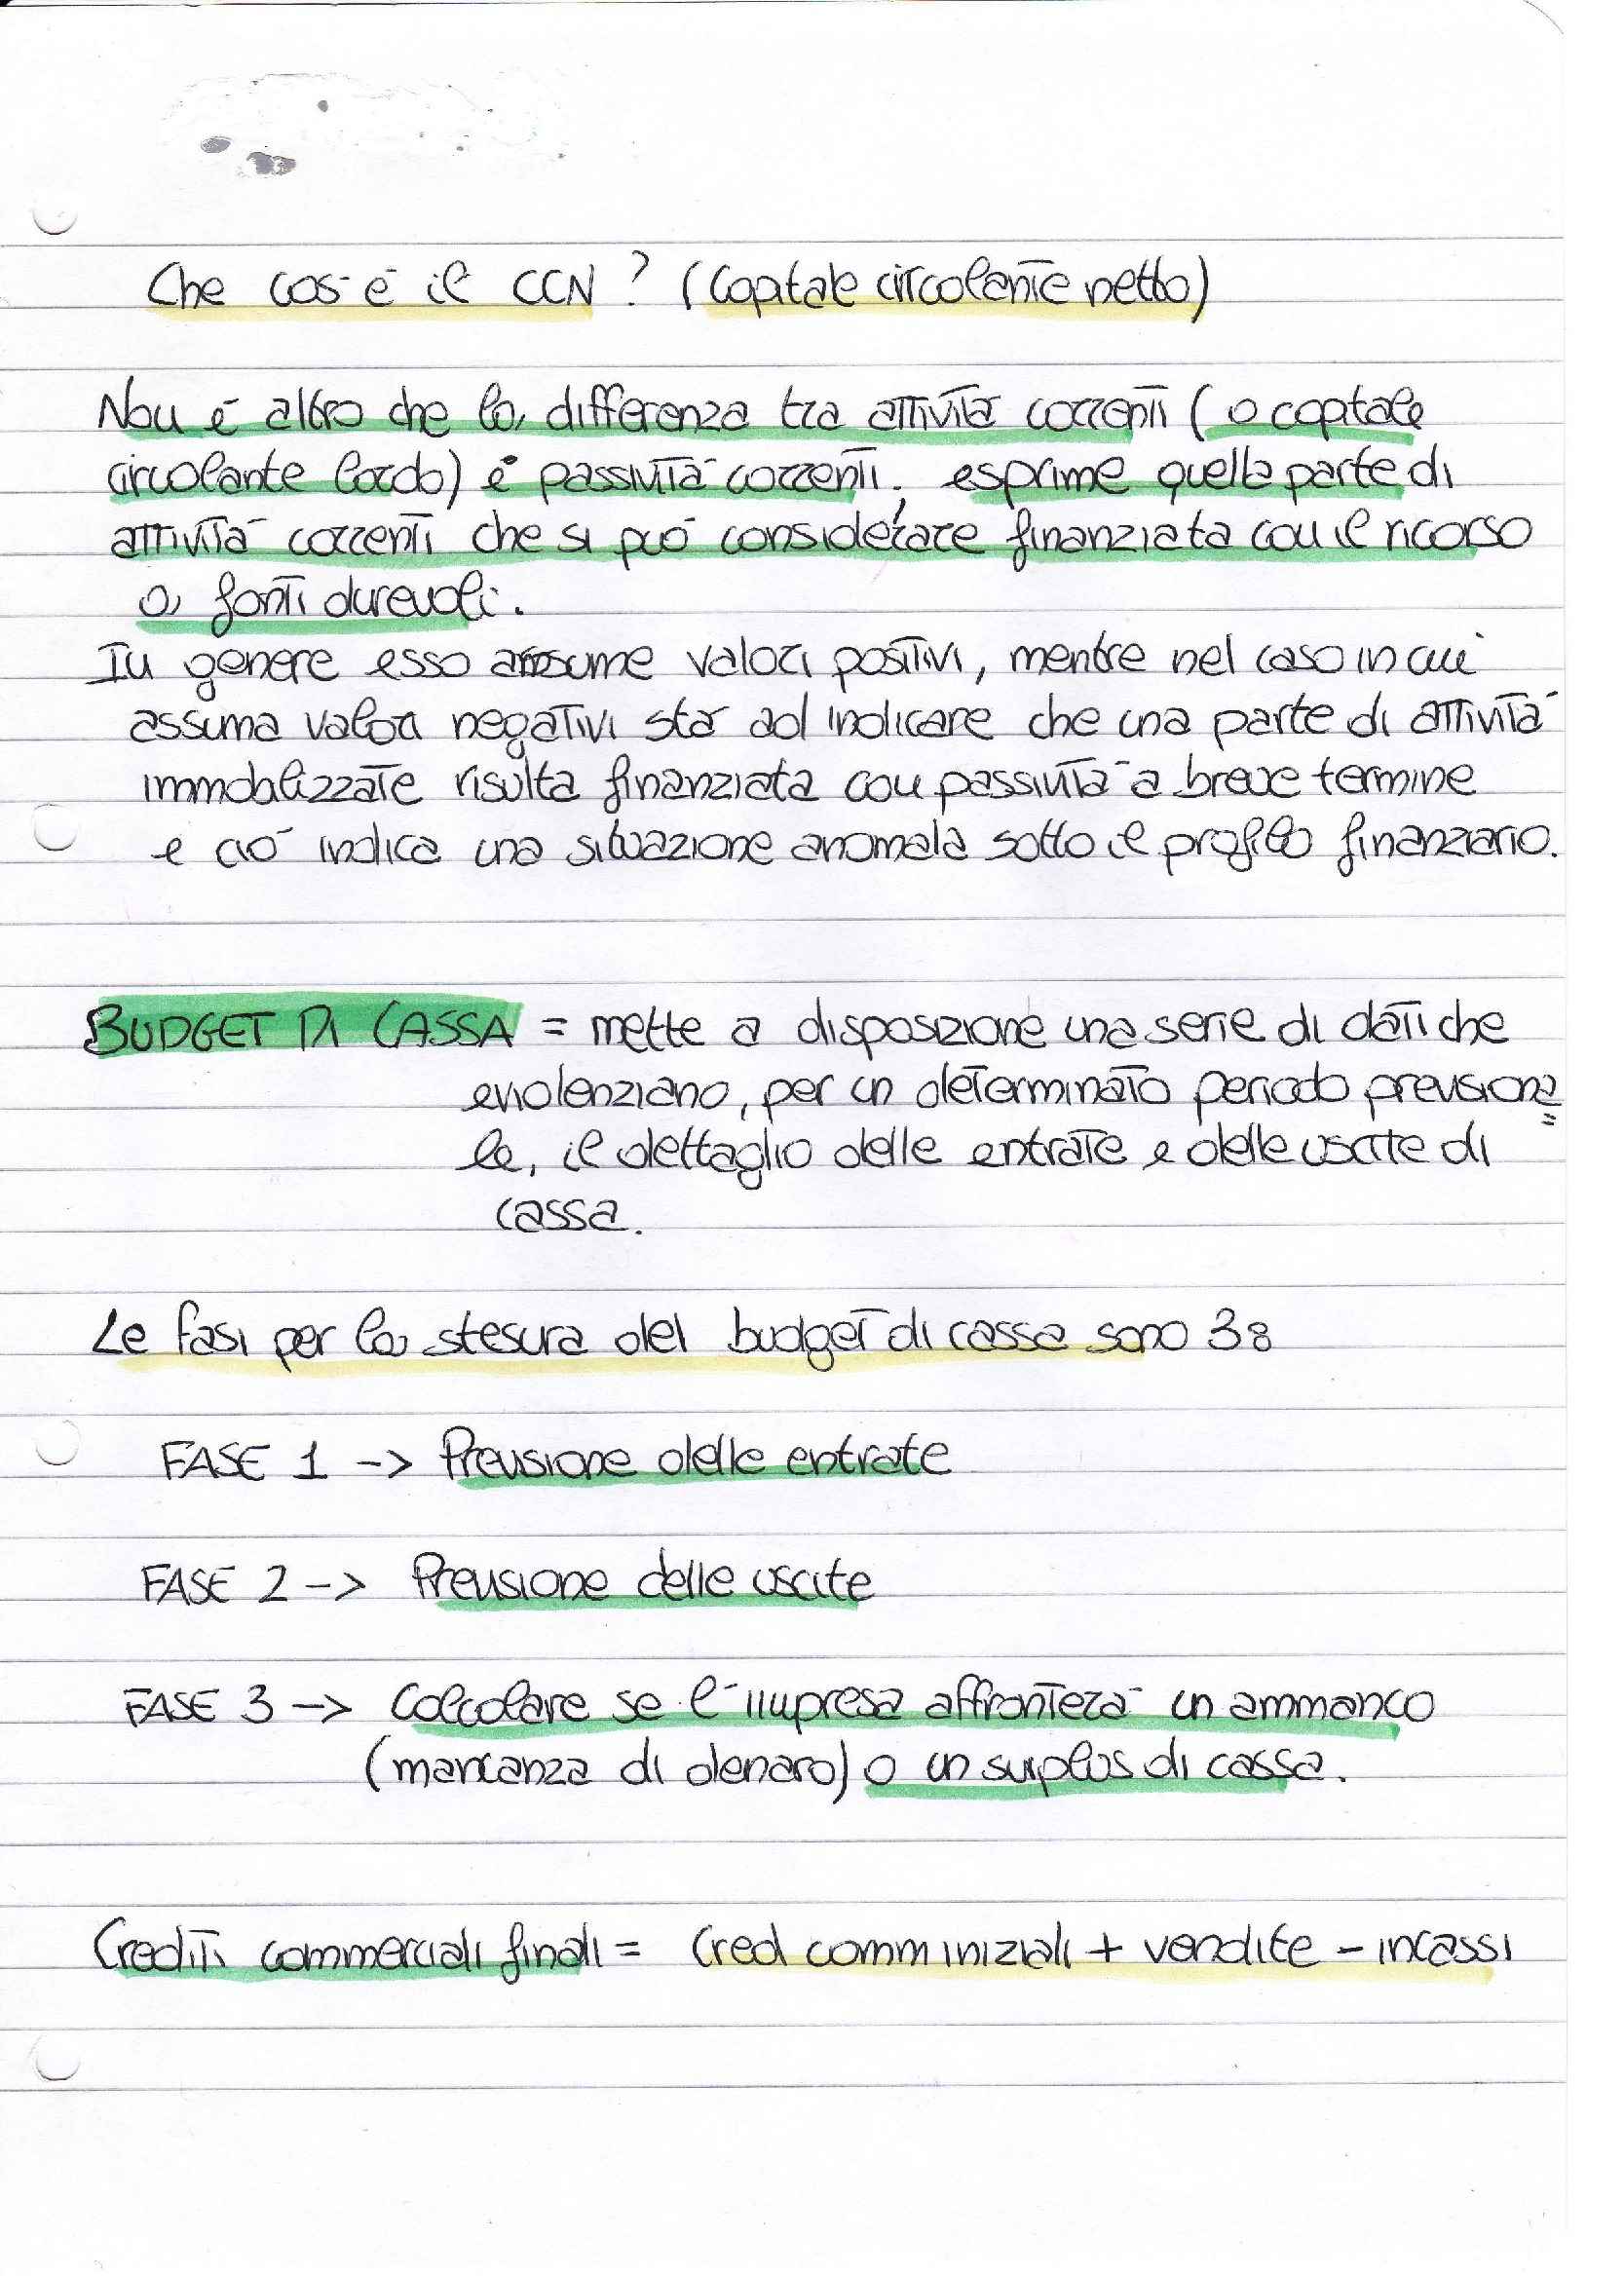 Che cos'è il CCN? (Capitale circolante netto)
Non è altro che la differenza tra attività correnti (o capitale
circolante lordo) e passività correnti; esprime quella parte di
attività correnti che si può considerare finanziata con il ricorso
a fonti durevoli.
In genere esso assume valori positivi, mentre nel caso in cui
assuma valori negativi sta ad indicare che una parte di attività
immobilizzate risulta finanziata con passività a breve termine
e ciò indica una situazione anomala sotto il profilo finanziario.
BUDGET DI CASSA = mette a disposizione una serie di dati che
evidenziano, per un determinato periodo previsiona=
le, il dettaglio delle entrate e delle uscite di
cassa.
Le fasi per la stesura del budget di cassa sono 3:
FASE 1 -> Previsione delle entrate
FASE 2 -> Previsione delle uscite
FASE 3 -> Calcolare se l'impresa affronterà un ammanco
(mancanza di denaro) o un surplus di cassa.
Crediti commerciali finali = Cred comm iniziali + vendite - incassi